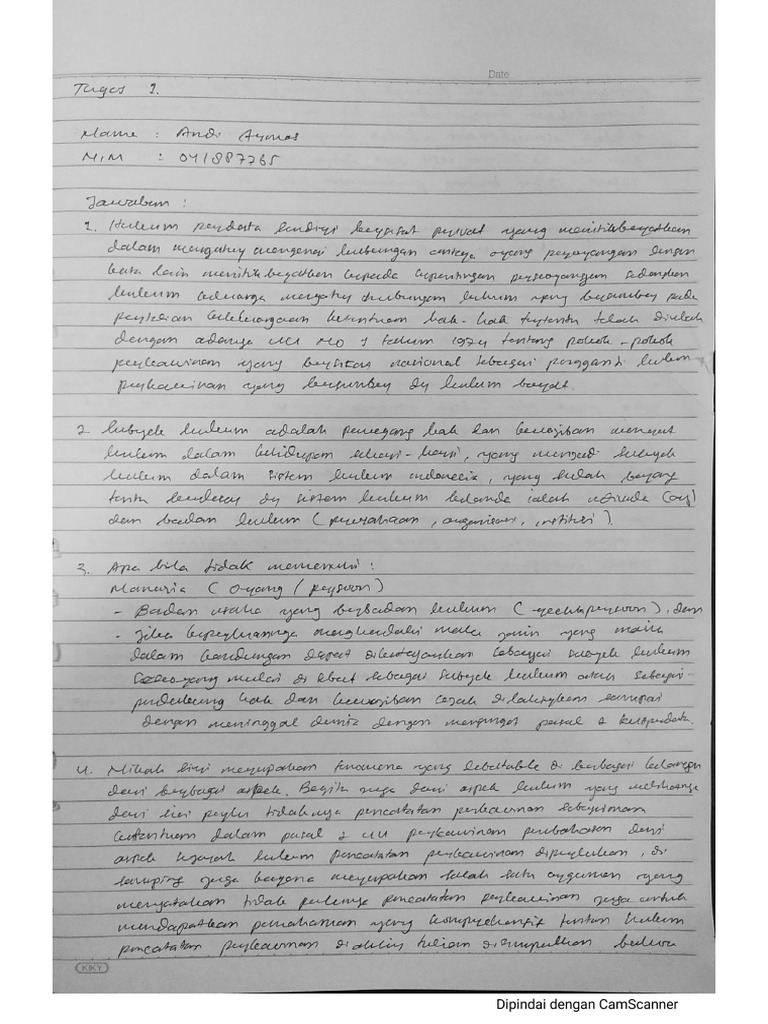 Date
Tugas 1.
Nama : Andi
NIM : 041887765
Jawaban :
1. Hukum perdata sendiri bersifat privat yang menitikberatkan
dalam mengatur mengenai hubungan antara orang perorangan dengan
kata lain menitik beratkan kepada kepentingan perseorangan sedangkan
hukum keluarga mengatur hubungan hukum yang bersumber pada
pertalian kekeluargaan ketentuan hak-hak tertentu telah diubah
dengan adanya UU NO 1 tahun 1974 tentang pokok-pokok
perkawinan yang bersifat nasional sebagai pengganti hukum
perkawinan yang bersumber dr hukum barat.
2. Subyek hukum adalah pemegang hak dan kewajiban menurut
hukum dalam kehidupan sehari-hari, yang menjadi subyek
hukum dalam sistem hukum indonesia, yang sudah barang
tentu dr sistem hukum belanda ialah individu (org)
dan badan hukum (perusahaan, organisasi, institusi).
3. Apa bila tidak memenuhi :
Manusia (Orang / persoon)
- Badan usaha yang berbadan hukum (rechtpersoon), dan
- Jika keperluannya menghendaki maka janin yang masih
dalam kandungan dapat sebagai subyek hukum
seseorang mulai di sebut sebagai subyek hukum sebagai
pendukung hak dan kewajiban sejak di lahirkan sampai
dengan meninggal dunia dengan mengingat pasal 2 kuhperdata.
4. Nikah siri merupakan fenomena yang debatable di berbagai kalangan
dari berbagai aspek. Begitu juga dari aspek hukum yang
dari sisi perlu tidaknya pencatatan perkawinan sebagaimana
dalam pasal 2 UU perkawinan dari
aspek sejarah hukum pencatatan perkawinan diperlukan, di
samping juga karena merupakan salah satu yang
menyatakan tidak perlunya pencatatan perkawinan juga untuk
mendapatkan pemahaman yang komprehensif tentang hukum
pencatatan perkawinan, di akhir tulisan disimpulkan bahwa
KIKY
Dipindai dengan CamScanner